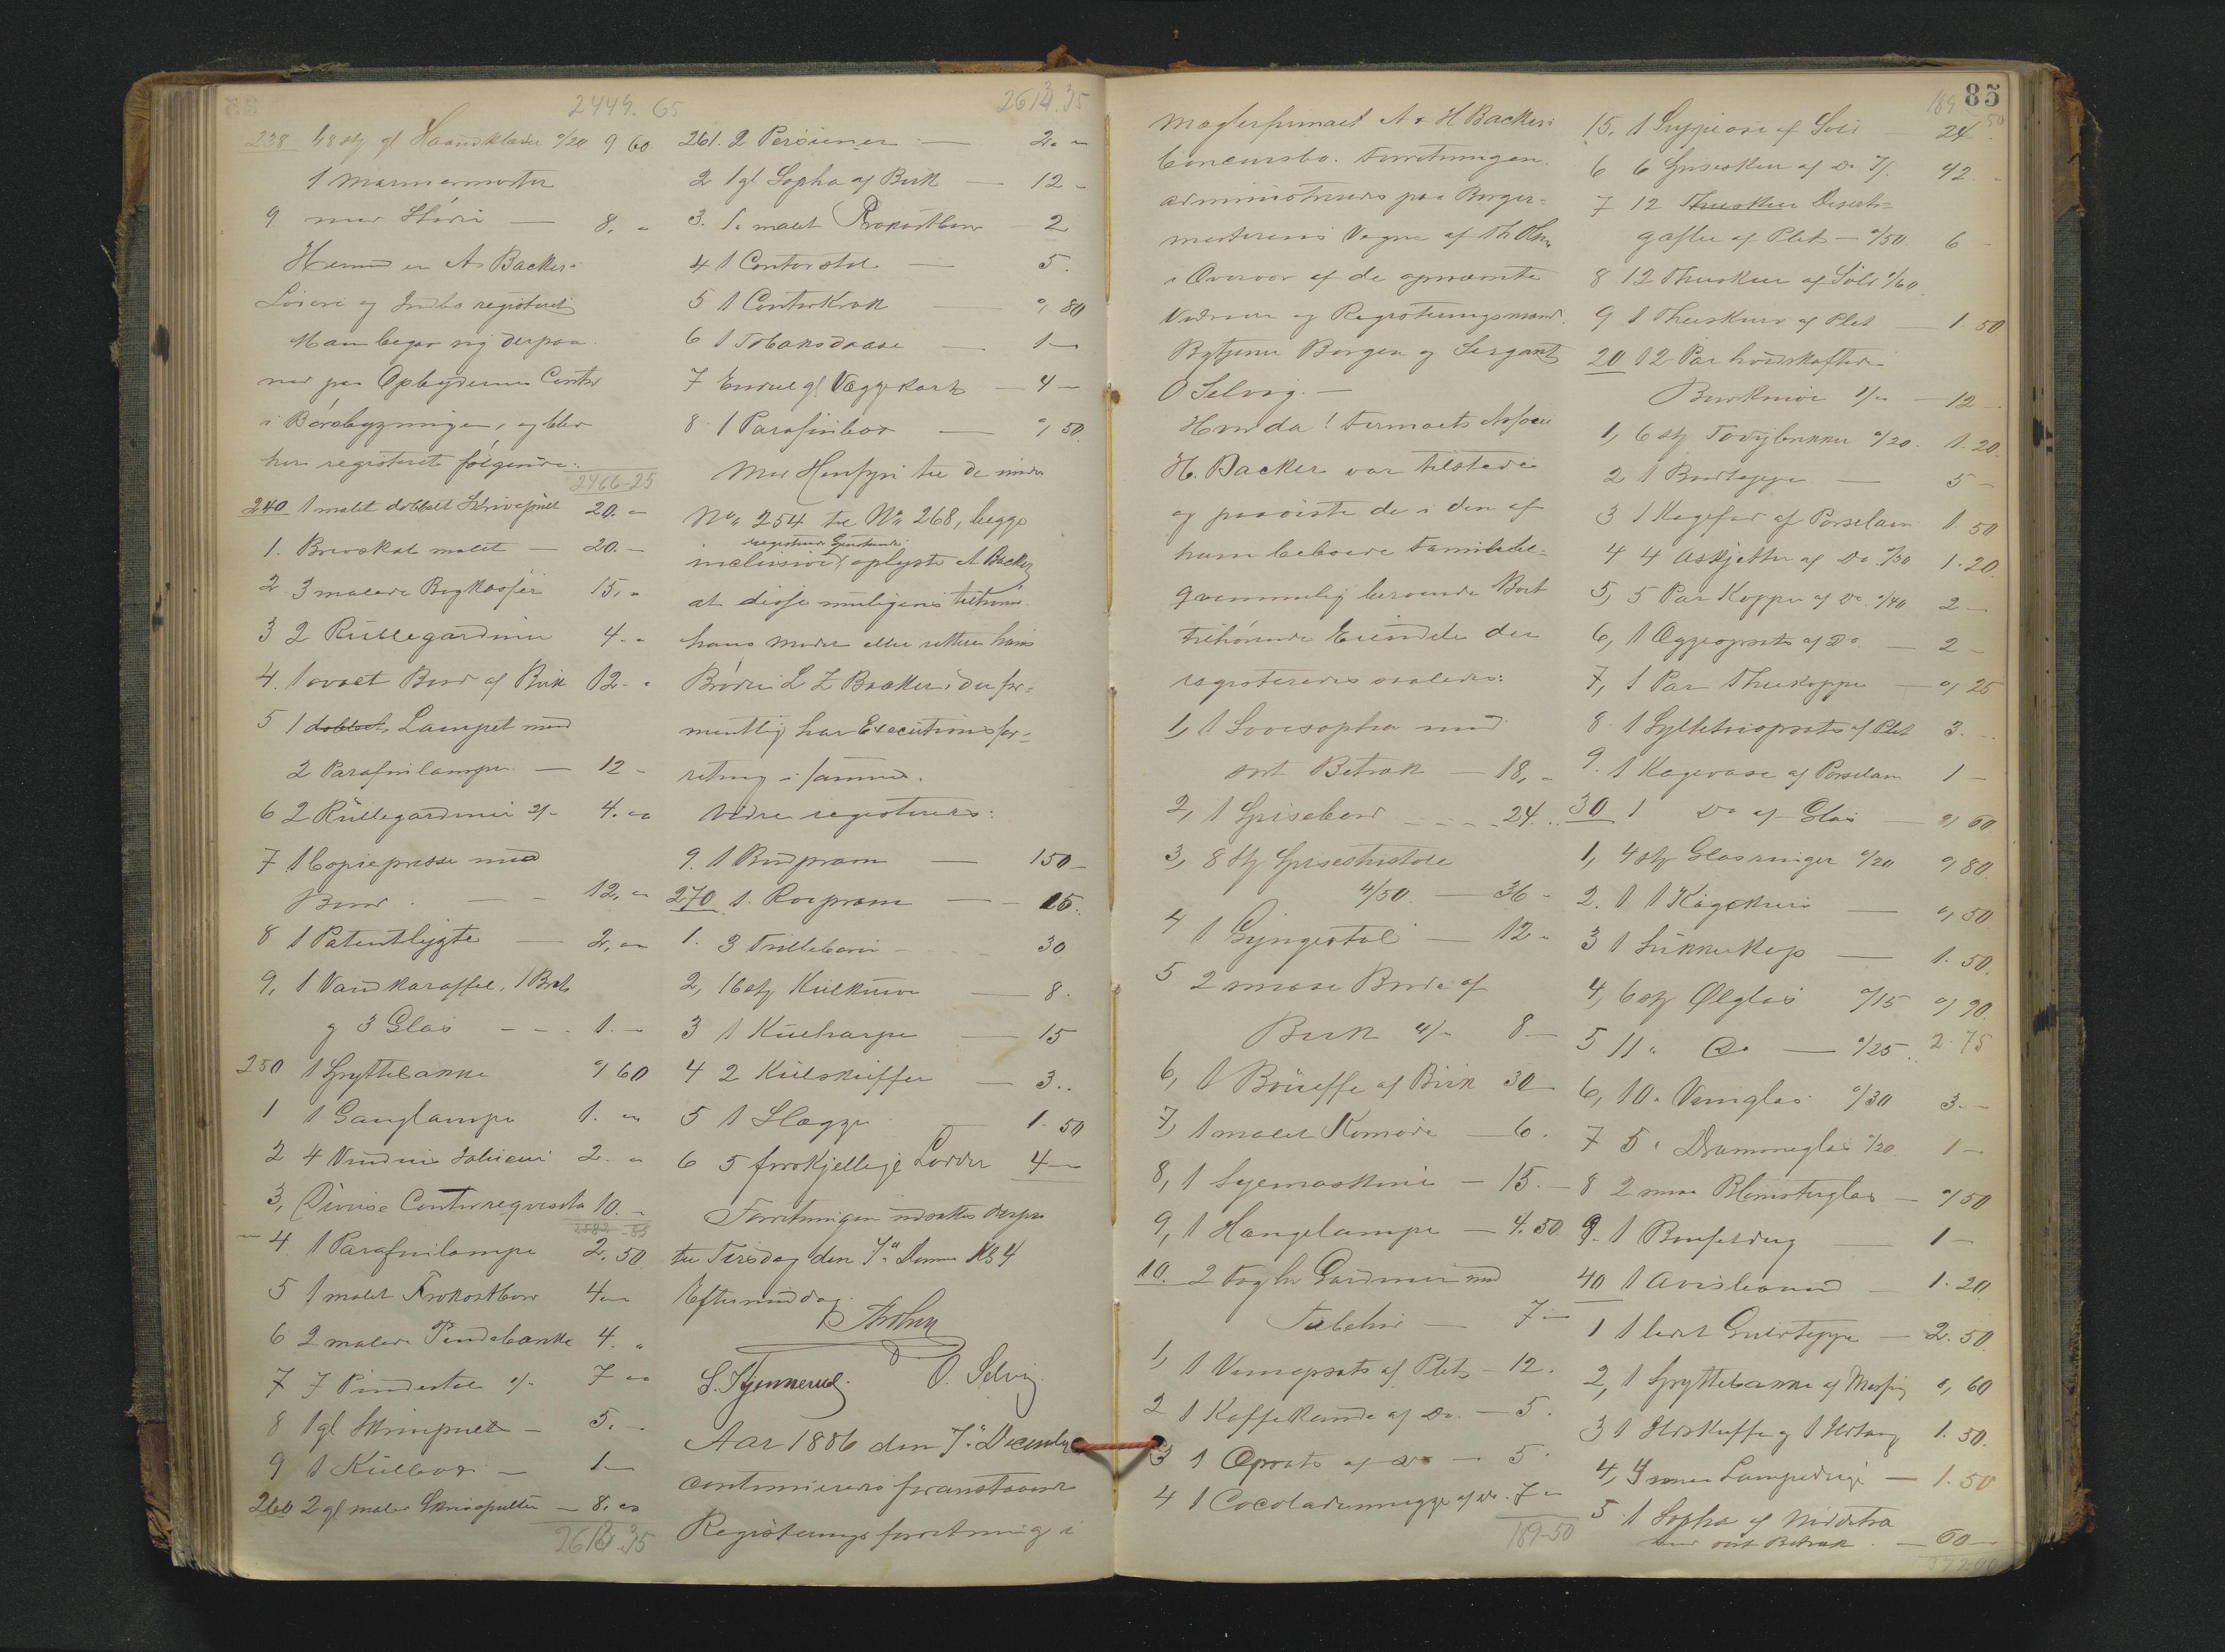 2449. 65
238 48 stk gl Haandklæder a/20 9 60
1 Marmormorter
9 med Stöder — 8. -
Hermed er A. Backers
Lösöre og Indbo registreret
Man begav sig derpaa
ned paa Opbyderens Contor
i Börsbygningen, og blev
her registreret fölgende:
2466-25
240 1 malet dobbelt Skrivepult 20. -
1. Brevskab malet — 20. -
2 3 malede Bogkasser 15, -
3 2 Rullegardiner 4. -
4. 1 ovalt Bord af Birk 12 - -
5 1 dobbelt Lampet med
2 Parafinlamper — 12 -
6 2 Rullegardiner 2/- 4. -
7 1 Copiepresse med
Bord — 12, -
8 1 Patentlygte — 2, -
9, 1 Vandkaraffel, 1 Bret
og 3 Glas — 1. -
250 1 Spyttebakke a/ 60
1 1 Ganglampe 1. -
2 4 Vindues Jalusier 2. -
3, Diverse Contorrequisita 10. -
4. 1 Parafinlampe 2. 50
5 1 malet Frokostbord 4 -
6 2 malede Pindebænke 4. -
7 7 Pindestole a/- 7 -
8 1 gl Skrivepult — 5. -
9 1 Kulbox — 1 -
260 2 gl malede Skrivepulter — 8. -
2613.35
2613.35
261. 2 Persienner — 2. -
2 1 gl Sopha af Birk — 12 -
3. 1 malet Frokostbord — 2
4 1 Contorstol — 5.
5 1 Contorkrak — a/ 80
6 1 Tobaksdaase — 1 -
7 Endvel gl Vægkart — 4 -
8 1 Parafinbox — a/ 50
Med Hensyn til de under
No 254 til No 268, begge
registrerede Gjenstande
inclusive, oplyste A Backer
at disse muligens tilhörer
hans Moder eller rettere hans
Broder L Z Backer, der for-
mentlig har Executionsfor-
retning i samme.
Videre registreres:
9. 1 Budpram — 150 -
270 1. Roepram — 15.
1. 3 Trillebörer — 30
2, 16 stk Kulkurve — 8.
3 1 Kulharpe — 15
4 2 Kulskuffer — 3..
5 1 Slægge — 1. 50
6 5 forskjellige Lodder 4 -
Forretningen udsattes derpaa
til Tirsdag den 7de Dennes Kl 4
Eftermiddag.
Th Ohm
S. Stjernerud. O. Selvig.
Aar 1886 den 7de December
continueredes foranstaaende
Registreringsforretning i
85
189 50
Mæglerfirmaet A & H Backers
Concursbo. Forretningen
administreredes paa Borger-
mesterens Vegne af Th Ohm
i Overvær af de opnævnte
Vidner og Registreringsmænd
Bytjener Borgen og Sergant
O Selvig. —
Hvorda! Firmaets Associe
H. Backer var tilstede
og paaviste de i den af
ham beboede Familielei-
lighed beroende Boet
tilhörende Eiendele der
registreredes saaledes:
1, 1 Sovesopha med
sort Betræk — 18, -
2, 1 Spisebord — 24..
3, 8 stk Spisestuestole
4/50. — 36 -
4 1 Gyngestol — 12 -
5 2 smaa Borde af
Birk 4/- 8 -
6, 1 Böueffe af Birk 30 -
7, 1 malet Komode — 6.
8, 1 Syemaskine — 15. -
9, 1 Hængelampe — 4.50
10. 2 Fag hv Gardiner med
Tilbehör — 7 -
1, 1 Vinopsats af Plet — 12.
2 1 Kaffekande af Do. — 5.
3 1 Opsats af Do — 5.
4 1 Cocolademugge af Do. 7 -
189-50
15. 1 Suppeöse af Sölv — 24
6 6 Spiseskeer af Do 7/. 42. -
7 12 Theskeer Desert-
gafler af Plet — a/50. 6 -
8 12 Theskeer af Sölv a/60
9 1 Theskurv af Plet — 1. 50
20 12 Par hvidskaftede
Bordknive 1/- — 12 -
1, 6 stk Todybrikker a/20. 1. 20
2 1 Bordteppe — 5 -
3 1 Kagefad af Porselæn 1. 50
4 4 Askjetter af Do a/30 1. 20.
5, 5 Par Kopper af Do. a/40 2 -
6, 1 Æggeopsats af Do. — 2 -
7, 1 Par Thekopper — a/ 25
8. 1 Syltetöiopsats af Plet 3. -
9. 1 Kagevase af Porselæn 1 -
30 1 Do af Glas — a/ 60
1, 4 stk Glasringer a/20 a/ 80.
2. 1 Kagekurv — a/ 50
3 1 Sukkerkop — 1. 50.
4, 6 stk Ølglas a/15 a/ 90.
5 11 " Do — a/25. 2 75
6, 10 " Vinglas a/30 3. -
7 5 " Drammeglas a/20. 1 -
8 2 smaa Blomsterglas — a/50
9. 1 Bonfortrug — 1 -
40 1 Avisbaand — 1. 20
1 1 lidet Gulvteppe — 2. 50
2, 1 Spyttebakke af Messing a/ 60
3 1 Ildskuffe og 1 Ildtang 1. 50.
4, 3 smaa Lampebrige — 1. 50
5. 1 Sopha af Viddetræ
med sort Betræk. — 60 -